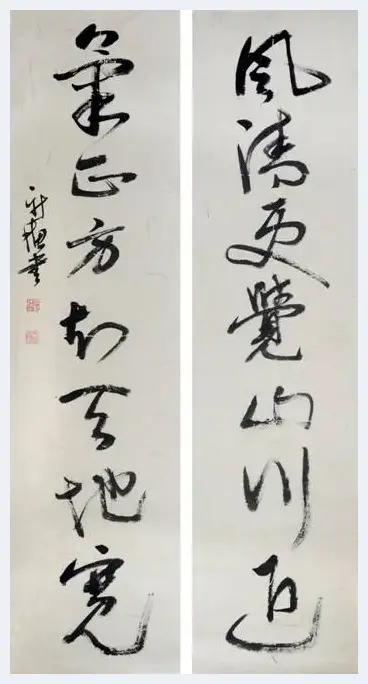 風清更覺山川近
氣正方知天地寬
書